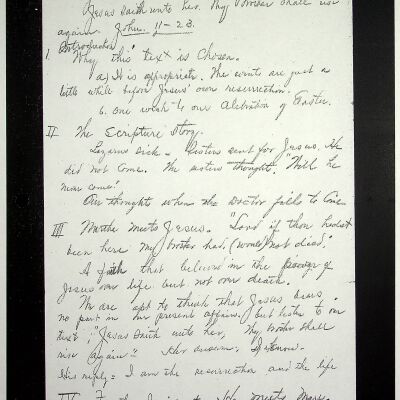 Jesus saith unto her. Thy brother shall rise
again. John. 11-23.
Introduction
I. Why this text is Chosen.
a) It is appropriate. The events are just a
little while before Jesus' own resurrection.
b. One week to our Celebration of Easter.
II The Scripture Story.
Lazarus Sick. Sisters sent for Jesus. He
did not Come. The sisters thought, "Will he
never come".
Our thought when the Doctor fails to Come.
III Martha Meets Jesus. "Lord if thou hadst
been here my brother had (would) not died."
A faith that believed in the power of
Jesus over life but not over death.
We are apt to think that Jesus has
no part in our present affairs. But listen to our
text; "Jesus saith unto her, Thy brother shall
rise again". Her answer: I know.
His reply = I am the resurrection and the life
IV Jesus meets Mary.